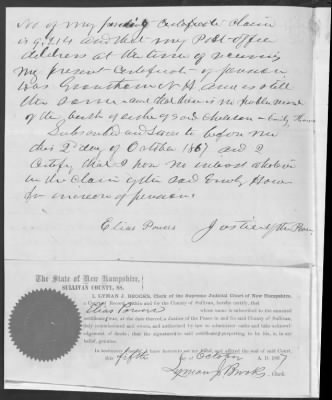 No of my pension Certificate Claim
is 9,214 and that my Post-office
address at the time of receiving
my present Certificate of pension
was Grantham N.H. and is still
the same and that there is no public record
of the birth of either of said children
Subscribed and sworn to before me
this 2d day of October 1867 and I
Certify that I have no interest whatever
in the Claim of the said Emily Howe
for increase of pension
Elias Powers Justice of the Peace
The State of New Hampshire,
SULLIVAN COUNTY, SS.
I, LYMAN J. BROOKS, Clerk of the Supreme Judicial Court of New Hampshire,
a Court of Record within and for the County of Sullivan, do hereby certify, that
Elias Powers whose name is subscribed to the annexed
certificate was, at the date thereof, a Justice of the Peace in and for said County of Sullivan,
duly commissioned and sworn, and authorized by law to administer oaths and take acknowledgment
of deeds; that the signature to said certificate purporting to be his, is, in my
belief, genuine.
In testimony whereof I have hereunto set my hand and affixed the seal of said Court,
this fifth day of October A. D. 1867
Lyman J Brooks, Clerk.